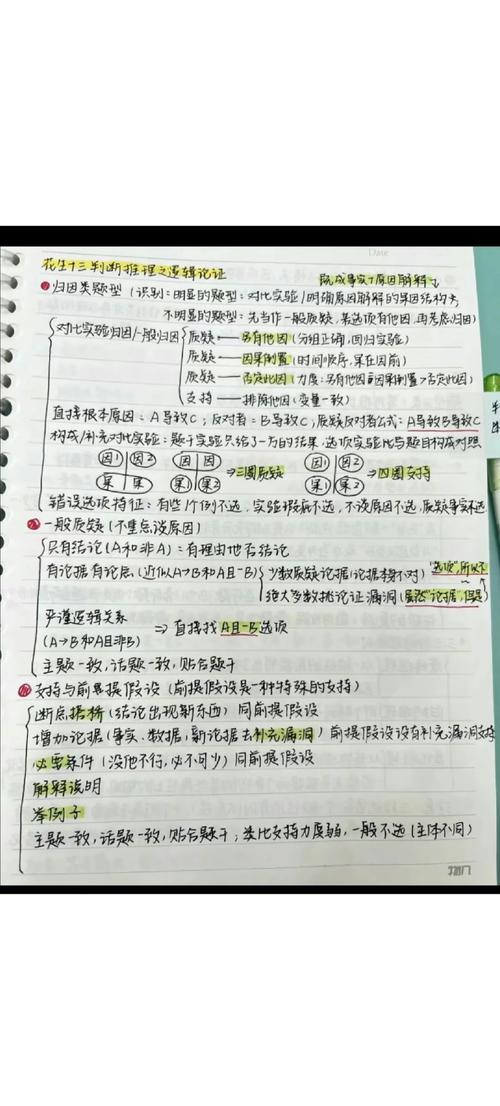 Date
花生十三判断推理之逻辑论证
既成事实+原因解释
①归因类题型（识别：明显的题型：对比实验/明确原因解释的果因结构等，
不明显的题型：先当作一般质疑，某选项有他因，再考虑归因）
对比实验归因/一般归因
质疑——另有他因（分组正确，回归实验）
质疑——因果倒置（时间顺序，果在因前）
质疑——否定此因（力度：另有他因=因果倒置>否定此因）
支持——排除他因（变量一致）
直接根本原因：A导致C；反对者：B导致C，质疑反对者公式：A导致B导致C
构成/补充对比实验：题干实验只给了一方的结果，选项实验比与题目构成对照
因1 因2 因 因 因1 因2
果 果 果1 果2 ⇒三圆质疑 果1 果2 ⇒四圆支持
错误选项特征：有些个例不选，实验瑕疵不选，不谈原因不选，质疑事实不选
②一般质疑（不重点谈原因）
只有结论（A和非A）：有理由地否结论
有论据有论点（近似A→B和A且-B）
少数质疑论据（论据本身不对）"选项"，所以不
绝大多数挑论证漏洞（虽然"论据"，但是）
严谨逻辑关系
（A→B和A且非B）⇒直接找A且-B选项
主题一致，话题一致，贴合题干
③支持与前提假设（前提假设是一种特殊的支持）
断点搭桥（结论出现新东西）同前提假设
增加论据（事实、数据，新论据去补充漏洞）前提假设没有补充漏洞支持
必要条件（没他不行，必不可少）同前提假设
解释说明
举例子
主题一致，话题一致，贴合题干；类比支持力度弱，一般不选（主体不同）